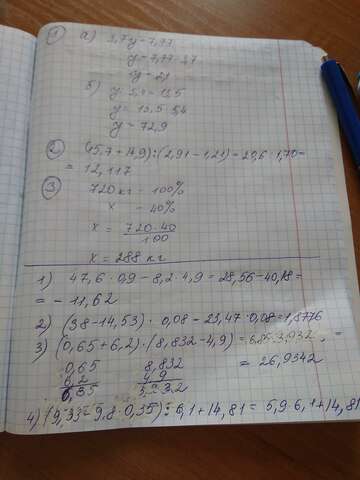 1 а) 3,7y = 7,77
y = 7,77 : 3,7
y = 2,1
б) y : 5,4 = 13,5
y = 13,5 · 5,4
y = 72,9
2 (15,7 + 4,9) : (2,91 – 1,21) = 20,6 : 1,70 =
= 12,117
3 720 кг – 100%
x – 40%
x = 720·40
100
x = 288 кг
1) 47,6 · 0,9 – 8,2 · 4,9 = 28,56 – 40,18 =
= – 11,62
2) (38 – 14,53) · 0,08 = 23,47 · 0,08 = 1,8776
3) (0,65 + 6,2) · (8,832 – 4,9) = 6,85 · 3,932 =
0,65 8,832 = 26,9342
6,2 4,9
6,85 3,932
4) (9,33 – 9,8 · 0,35) : 6,1 + 14,81 = 5,9 : 6,1 + 14,81